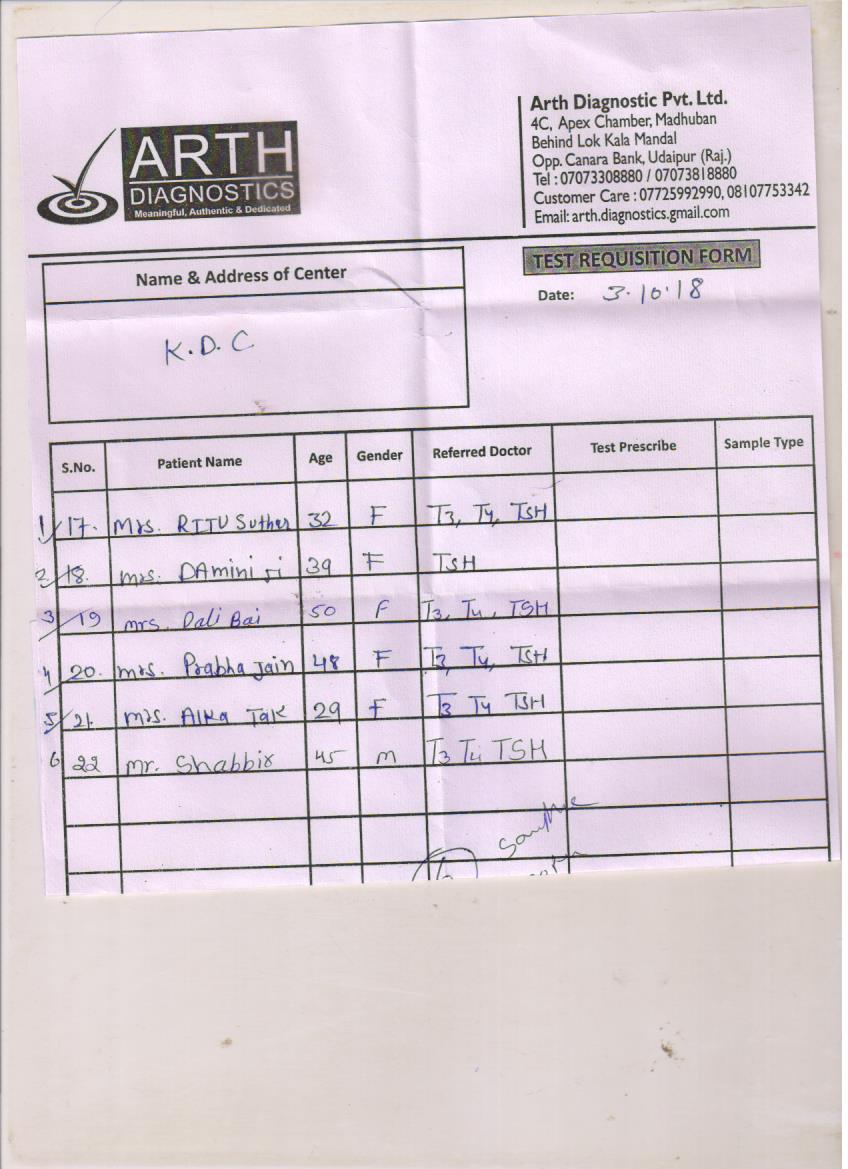 ARTH
DIAGNOSTICS
Meaningful, Authentic & Dedicated
Arth Diagnostic Pvt. Ltd.
4C, Apex Chamber, Madhuban
Behind Lok Kala Mandal
Opp. Canara Bank, Udaipur (Raj.)
Tel : 07073308880 / 07073818880
Customer Care : 07725992990, 08107753342
Email: arth.diagnostics.gmail.com
Name & Address of Center
K.D.C
TEST REQUISITION FORM
Date: 3.10.18
S.No. Patient Name Age Gender Referred Doctor Test Prescribe Sample Type
1/17. Mrs. RITU Suther 32 F T3, T4, TSH
2/18. mrs. DAmini Ji 39 F TSH
3/19 mrs. Dali Bai 50 F T3, T4, TSH
4/20. mrs. Prabha Jain 48 F T3, T4, TSH
5/21. mrs. Alka Tak 29 F T3 T4 TSH
6 22 mr. Shabbir 45 m T3 T4 TSH